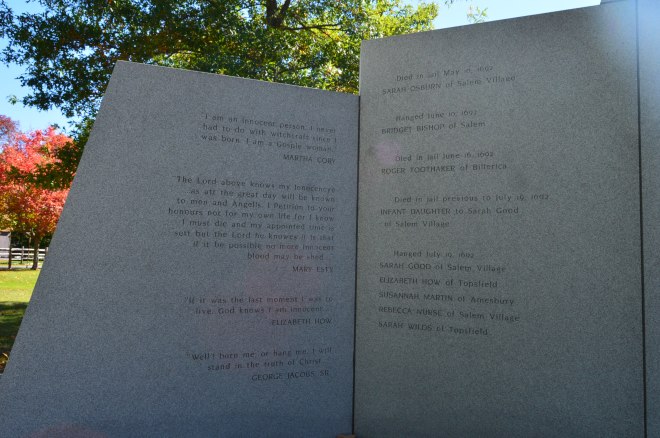 "I am an Innocent person. I never
had to do with witchcraft since I
was born. I am a Gosple woman."
MARTHA CORY
"The Lord above knows my Innocencye
as att the great day will be known
to men and Angells. I Petition to your
honours not for my own life for I know
I must die and my appointed time is
sett but the Lord he knowes it is that
if it be possible no more innocent
blood may be shed
MARY ESTY
"If it was the last moment I was to
live, God knows I am innocent..."
ELIZABETH HOW
"Well! burn me, or hang me, I will
stand in the truth of Christ..."
GEORGE JACOBS, SR.
Died in jail May 10, 1692
SARAH OSBURN of Salem Village
Hanged June 10, 1692
BRIDGET BISHOP of Salem
Died in jail June 16, 1692
ROGER TOOTHAKER of Billerica
Died in jail previous to July 19, 1692
INFANT DAUGHTER to Sarah Good
of Salem Village
Hanged July 19, 1692
SARAH GOOD of Salem Village
ELIZABETH HOW of Topsfield
SUSANNAH MARTIN of Amesbury
REBECCA NURSE of Salem Village
SARAH WILDS of Topsfield